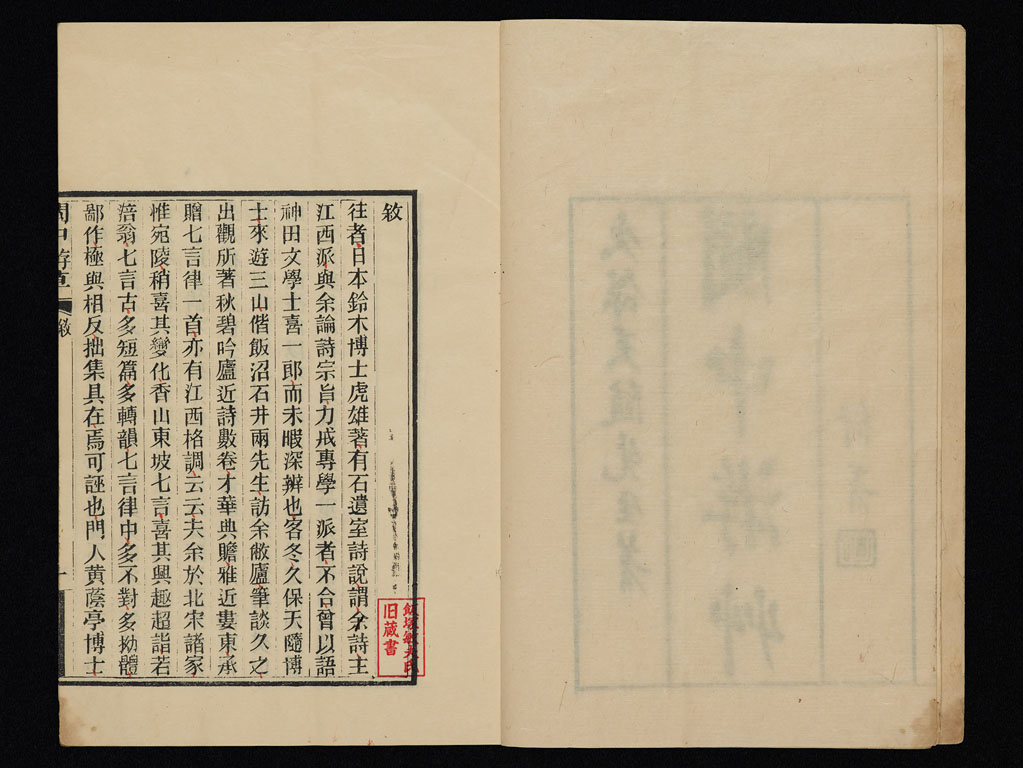 敘
往者日本鈴木博士虎雄著有石遺室詩說謂余詩主
江西派與余論詩宗旨力戒專學一派者不合曾以語
神田文學士喜一郎而未暇深辨也客冬久保天隨博
士來遊三山偕飯沼石井兩先生訪余敝廬筆談久之
出觀所著秋碧吟廬近詩數卷才華典贍雅近婁東承
贈七言律一首亦有江西格調云云夫余於北宋諸家
惟宛陵稍喜其變化香山東坡七言喜其興趣超詣若
涪翁七言古多短篇多轉韻七言律中多不對多拗體
鄙作極與相反拙集具在焉可誣也門人黃蔭亭博士
閩中游草
敘
一
旧蔵書
久保天隨先生著